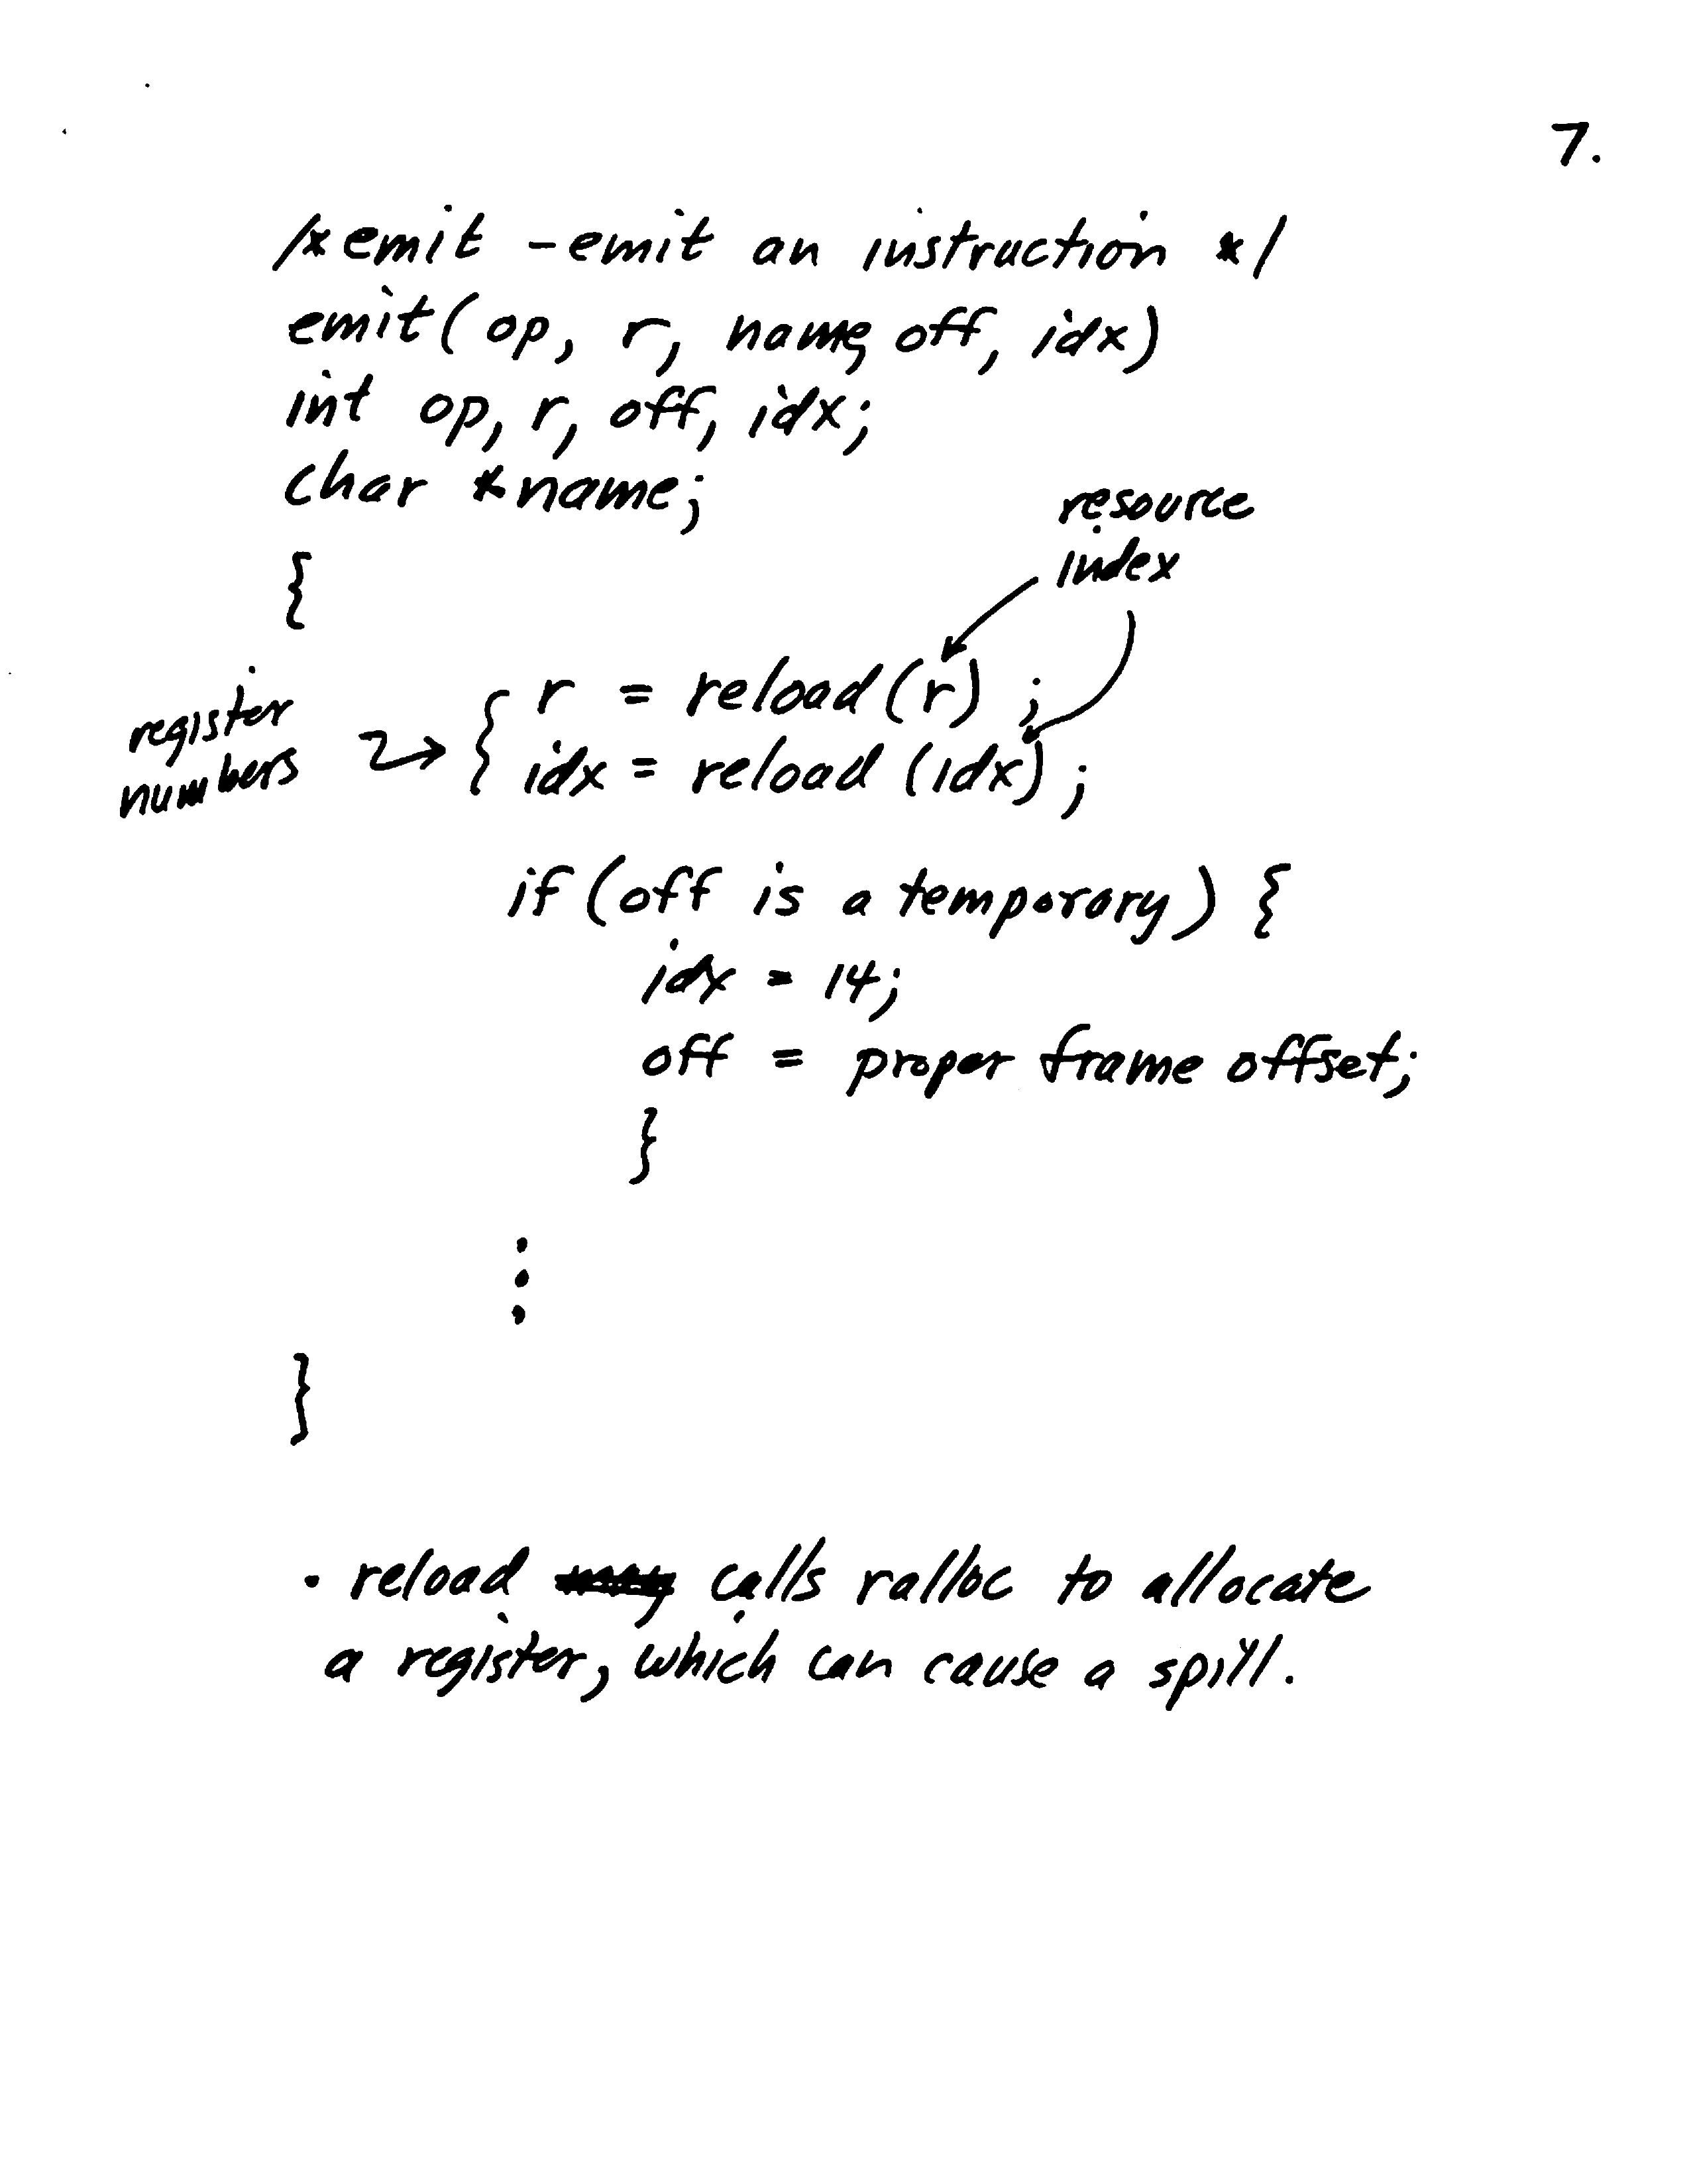 7.
/* emit - emit an instruction */
emit(op, r, name, off, idx)
int op, r, off, idx;
char *name;
resource
index
{
r = reload(r);
register
numbers
idx = reload(idx);
if (off is a temporary) {
idx = 14;
off = proper frame offset;
}
⋮
}
· reload calls ralloc to allocate
a register, which can cause a spill.